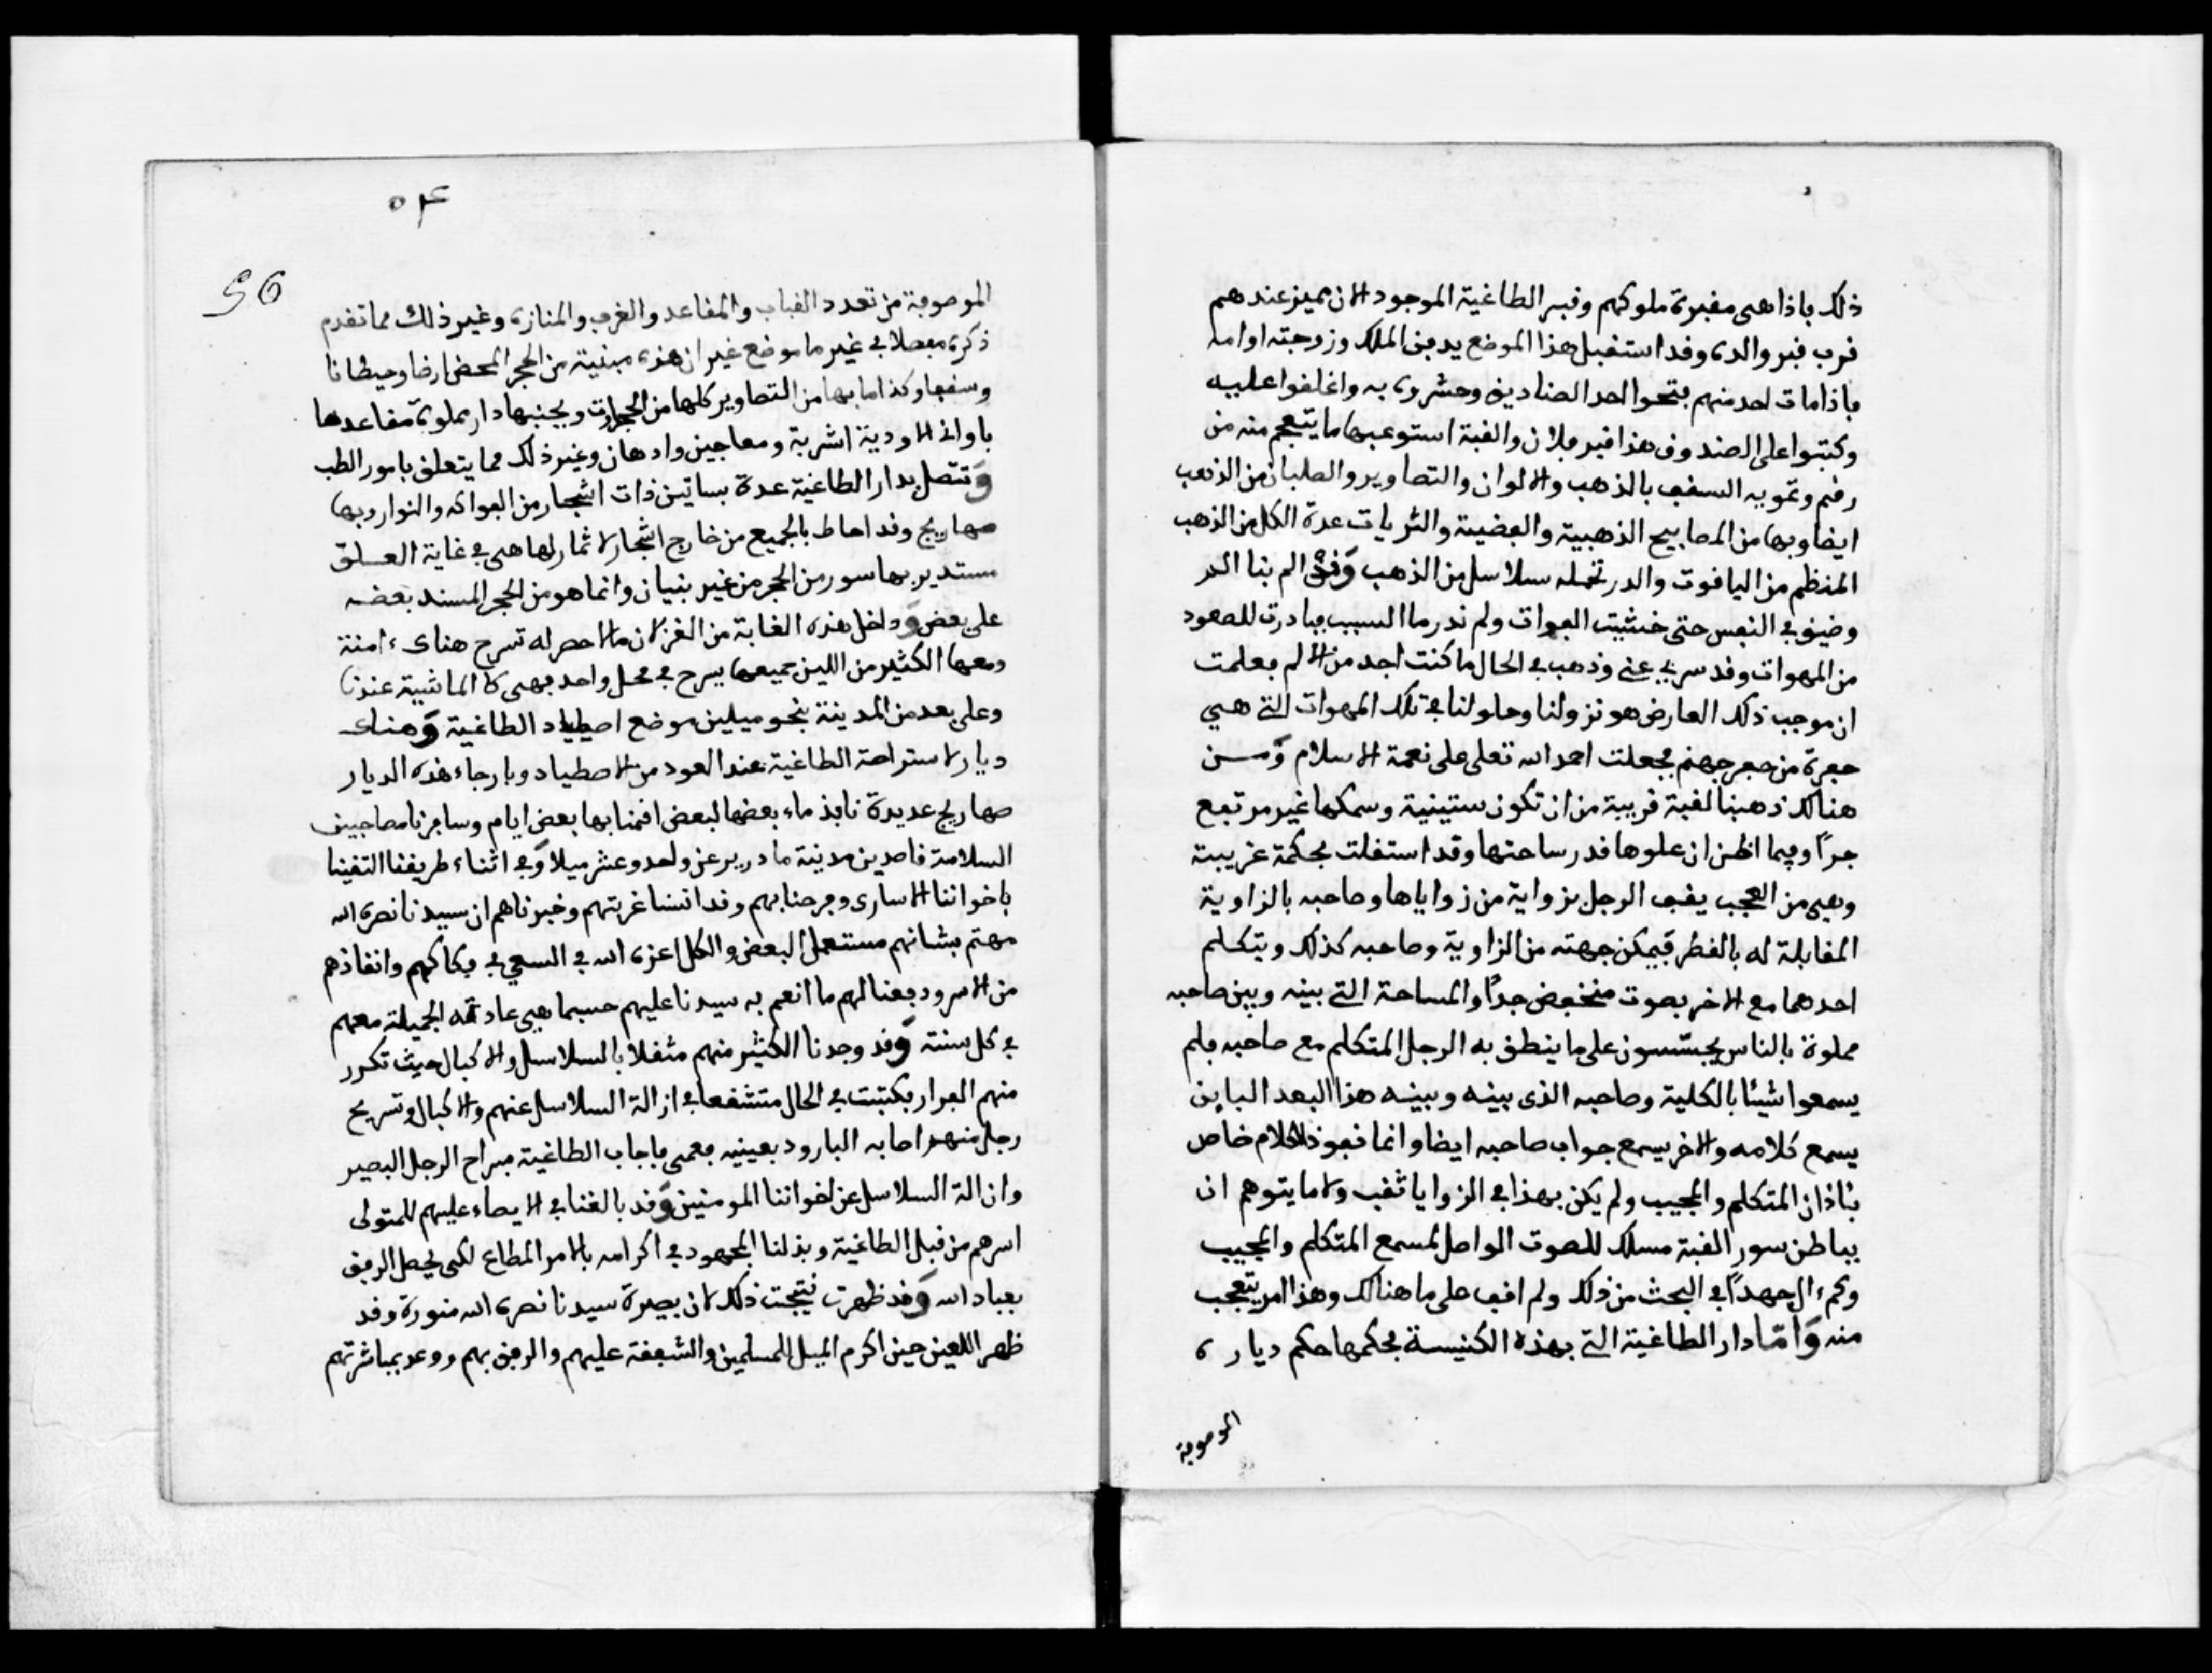 ذلك فاذا هى مقبرة ملوكهم وقبر الطاغية الموجود الان مميز عندهم
قرب قبر والده وقد استقبل هذا الموضع يدفن الملك وزوجته اوامه
فاذا مات احد منهم فتحوا احد الصناديق وحشروه به واغلقوا عليه
وكتبوا على الصندوق هذا قبر فلان والقبة استوعبها ما يتعجم منه من
رقم وتمويه السقف بالذهب والالوان والتصاوير والصلبان من الذهب
ايضا وبها من المصابيح الذهبية والفضية والثريات عدة الكل من الذهب
المنظم من اليافوت والدر تحمله سلاسل من الذهب وقد الم بنا الدر
وضيق في النفس حتى خشيت الفوات ولم ندر ما السبب فبادرت للصعود
من المهوات وقد سري عني وذهب في الحال ما كنت اجد من الالم فعلمت
ان موجب ذلك العارض هو نزولنا وحلولنا في تلك المهوات التي هي
حفرة من حفر جهنم فجعلت احمد الله تعلى على نعمة الاسلام ومن
هنالك ذهبنا لقبة قريبة من ان تكون ستينية وسمكها غير مرتفع
جدًا وفيما اظن ان علوها قدر ساحتها وقد استقلت بحكمة غريبة
وهى من العجب يقف الرجل بزواية من زواياها وصاحبه بالزاوية
المقابلة له بالقطر فيمكن جهته من الزاوية وصاحبه كذلك ويتكلم
احدهما مع الاخر بصوت منخفض جدًا والمساحة التي بينه وبين صاحبه
مملوة بالناس يتجسّسون على ما ينطق به الرجل المتكلم مع صاحبه فلم
يسمعوا شيئا بالكلية وصاحبه الذى بينه وبينه هذا البعد الباين
يسمع كلامه والاخر يسمع جواب صاحبه ايضا وانما نفوذ الكلام خاص
بئاذان المتكلم والمجيب ولم يكن بهذا في الزوايا ثقب ولا ما يتوهم ان
بباطن سور القبة مسلك للصوت الواصل لمسمع المتكلم والمجيب
ولم ءال جهدًا في البحث من ذلك ولم اقف على ما هنالك وهذا امر يتعجب
منه وَامّا دار الطاغية التي بهذه الكنيسة فحكمها حكم دياره
الموصوفة
٥٤
56
الموصوفة من تعدد القباب والمقاعد والغرف والمنازه وغير ذلك مما تقدم
ذكره مفصلا في غير ما موضع غير ان هذه مبنية من الحجر المحض ارضا وحيطانا
وسقفا وكذا ما بها من التصاوير كلها من الحجارت وبجنبها دار مملوة مقاعدها
باوانى الاودية اشربة ومعاجين وادهان وغير ذلك مما يتعلق بامور الطب
وَتتصل بدار الطاغية عدة بساتين ذات اشجار من الفواكه والنوار وبها
صهاريج وقد احاط بالجميع من خارج اشجار لا ثمار لها هى في غاية العلو
مستدير بها سور من الحجر من غير بنيان وانما هو من الحجر المسند بعضه
على بعض وَداخل هذه الغابة من الغزلان ما لا حصر له تسرح هناك ءامنة
ومعها الكثير من اللين جميعها يسرح في محل واحد فهى كالماشية عندنا
وعلى بعد من المدينة بنحو ميلين موضع اصطياد الطاغية وَهناك
ديار لاستراحة الطاغية عند العود من الاصطياد وبارجاء هذه الديار
صهاريج عديدة نافذ ماء بعضها لبعض اقمنا بها بعض ايام وسافرنا مصاحبين
السلامة قاصدين مدينة مادريد عن واحد وعشر ميلا وَفي اثناء طريقنا التقينا
باخواننا الاسارى وفرحنا بهم وقد انسنا غربتهم وخبرناهم ان سيدنا نصره الله
مهتم بشانهم مستعمل البعض والكل اعزه الله في السعي في فكاكهم وانقاذهم
من الاسر ودفعنا لهم ما انعم به سيدنا عليهم حسبما هي عادته الجميلة معهم
في كل سنة وَقد وجدنا الكثير منهم مثقلا بالسلاسل والاكبال حيث تكرر
منهم الفرار فكتبت في الحال متشفعا في ازالة السلاسل عنهم والاكبال وتسريح
رجل منهم اصابه البارود بعينيه فعمى فاجاب الطاغية بسراح الرجل البصير
وازالة السلاسل عن اخواننا المومنين وَقد بالغنا في الايصاء عليهم للمتولى
اسرهم من قبل الطاغية وبذلنا المجهود في اكرامه بالامر المطاع لكى يحصل الرفق
بعباد الله وَقد ظهرت نتيجت ذلك لان بصيرة سيدنا نصره الله منورة وقد
ظهر اللعين حين اكرم الميل للمسلمين والشفقة عليهم والرفق بهم ووعد بمباشرتهم